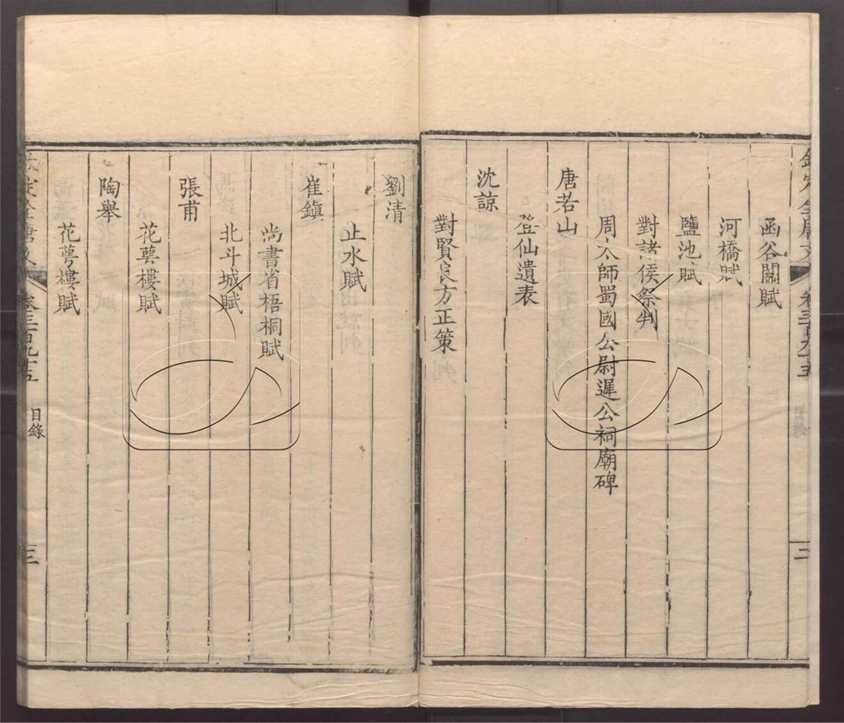 欽定全唐文 卷三百九十五 目錄 二
函谷關賦
河橋賦
鹽池賦
對諸侯祭判
周太師蜀國公尉遲公祠廟碑
唐若山
登仙遺表
沈諒
對賢良方正策
劉清
止水賦
崔鎮
尚書省梧桐賦
北斗城賦
張甫
花萼樓賦
陶舉
花萼樓賦
欽定全唐文 卷三百九十五 目錄 三